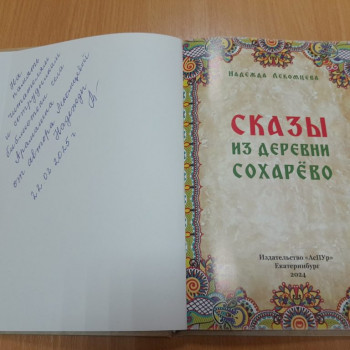 На
память
читателям
и сотрудникам
библиотеки
от автора
Надежды
22.02.2025г.
НАДЕЖДА ЛЕКОМЦЕВА
СКАЗЫ
ИЗ ДЕРЕВНИ
СОХАРЁВО
Издательство «АсПУр»
Екатеринбург
2024